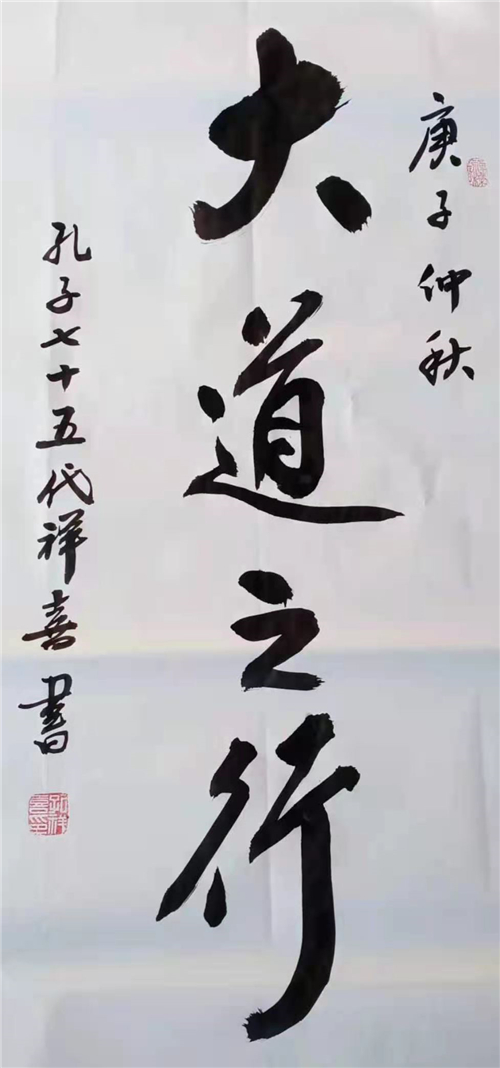 庚子仲秋
大道之行
孔子七十五代祥喜書